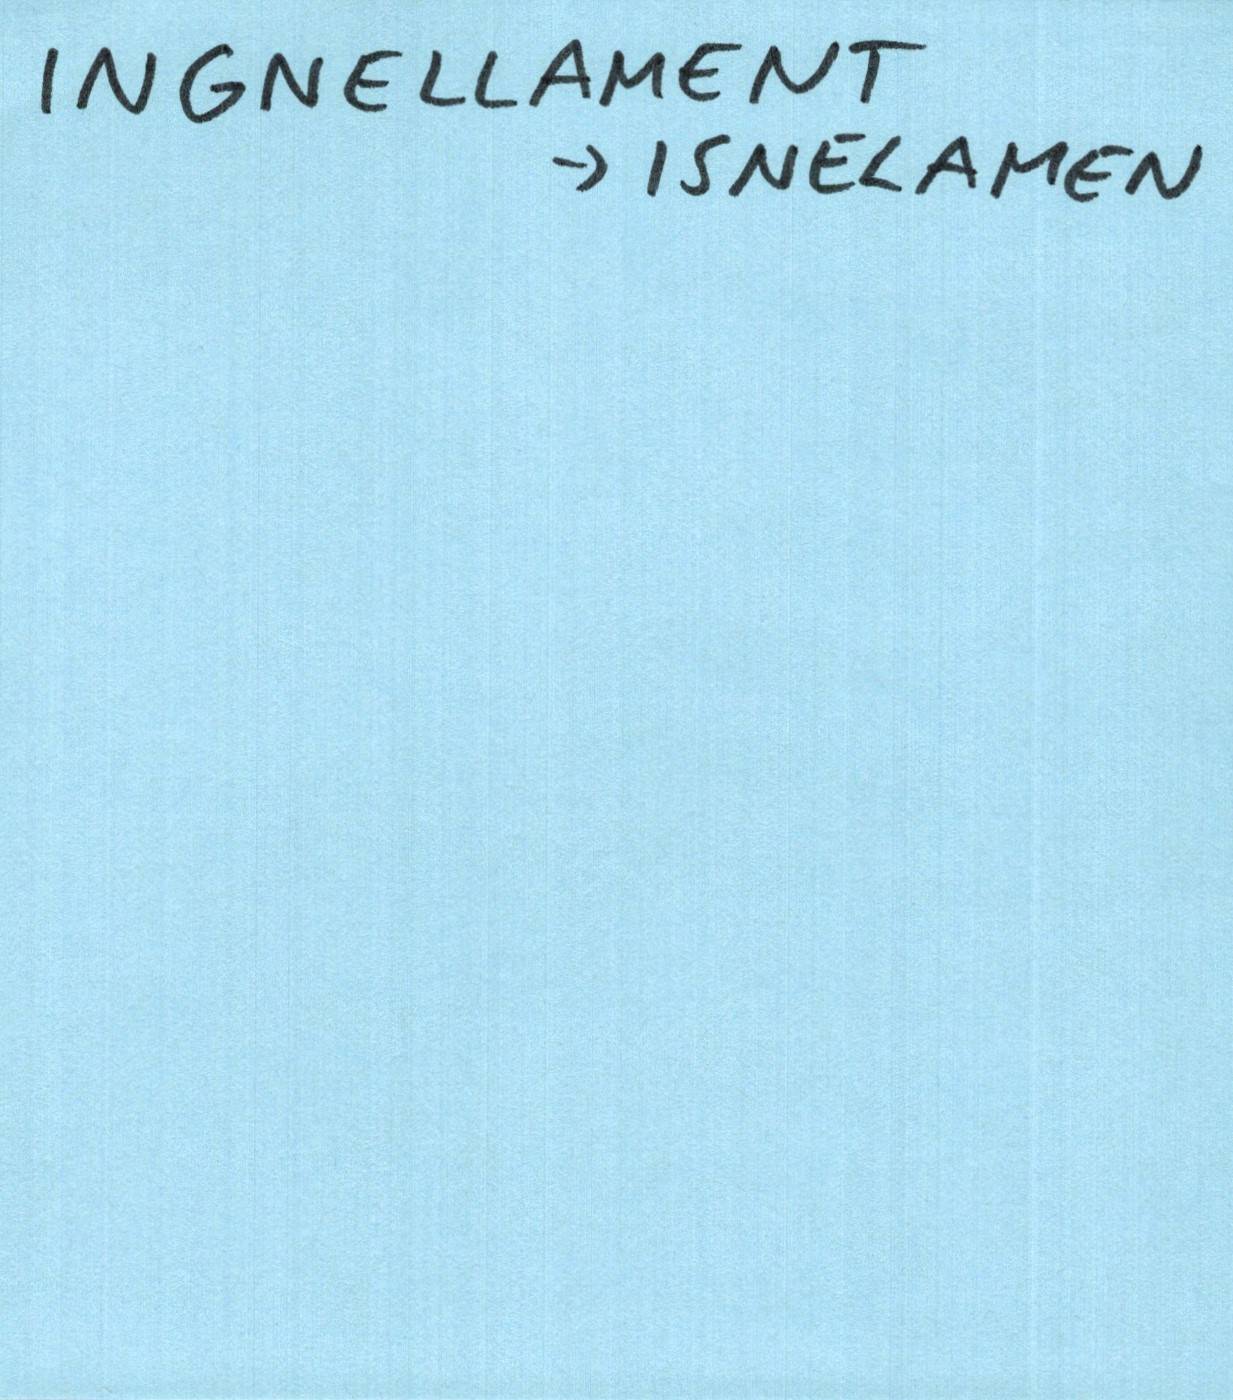 INGNELLAMENT
→ ISNELAMEN